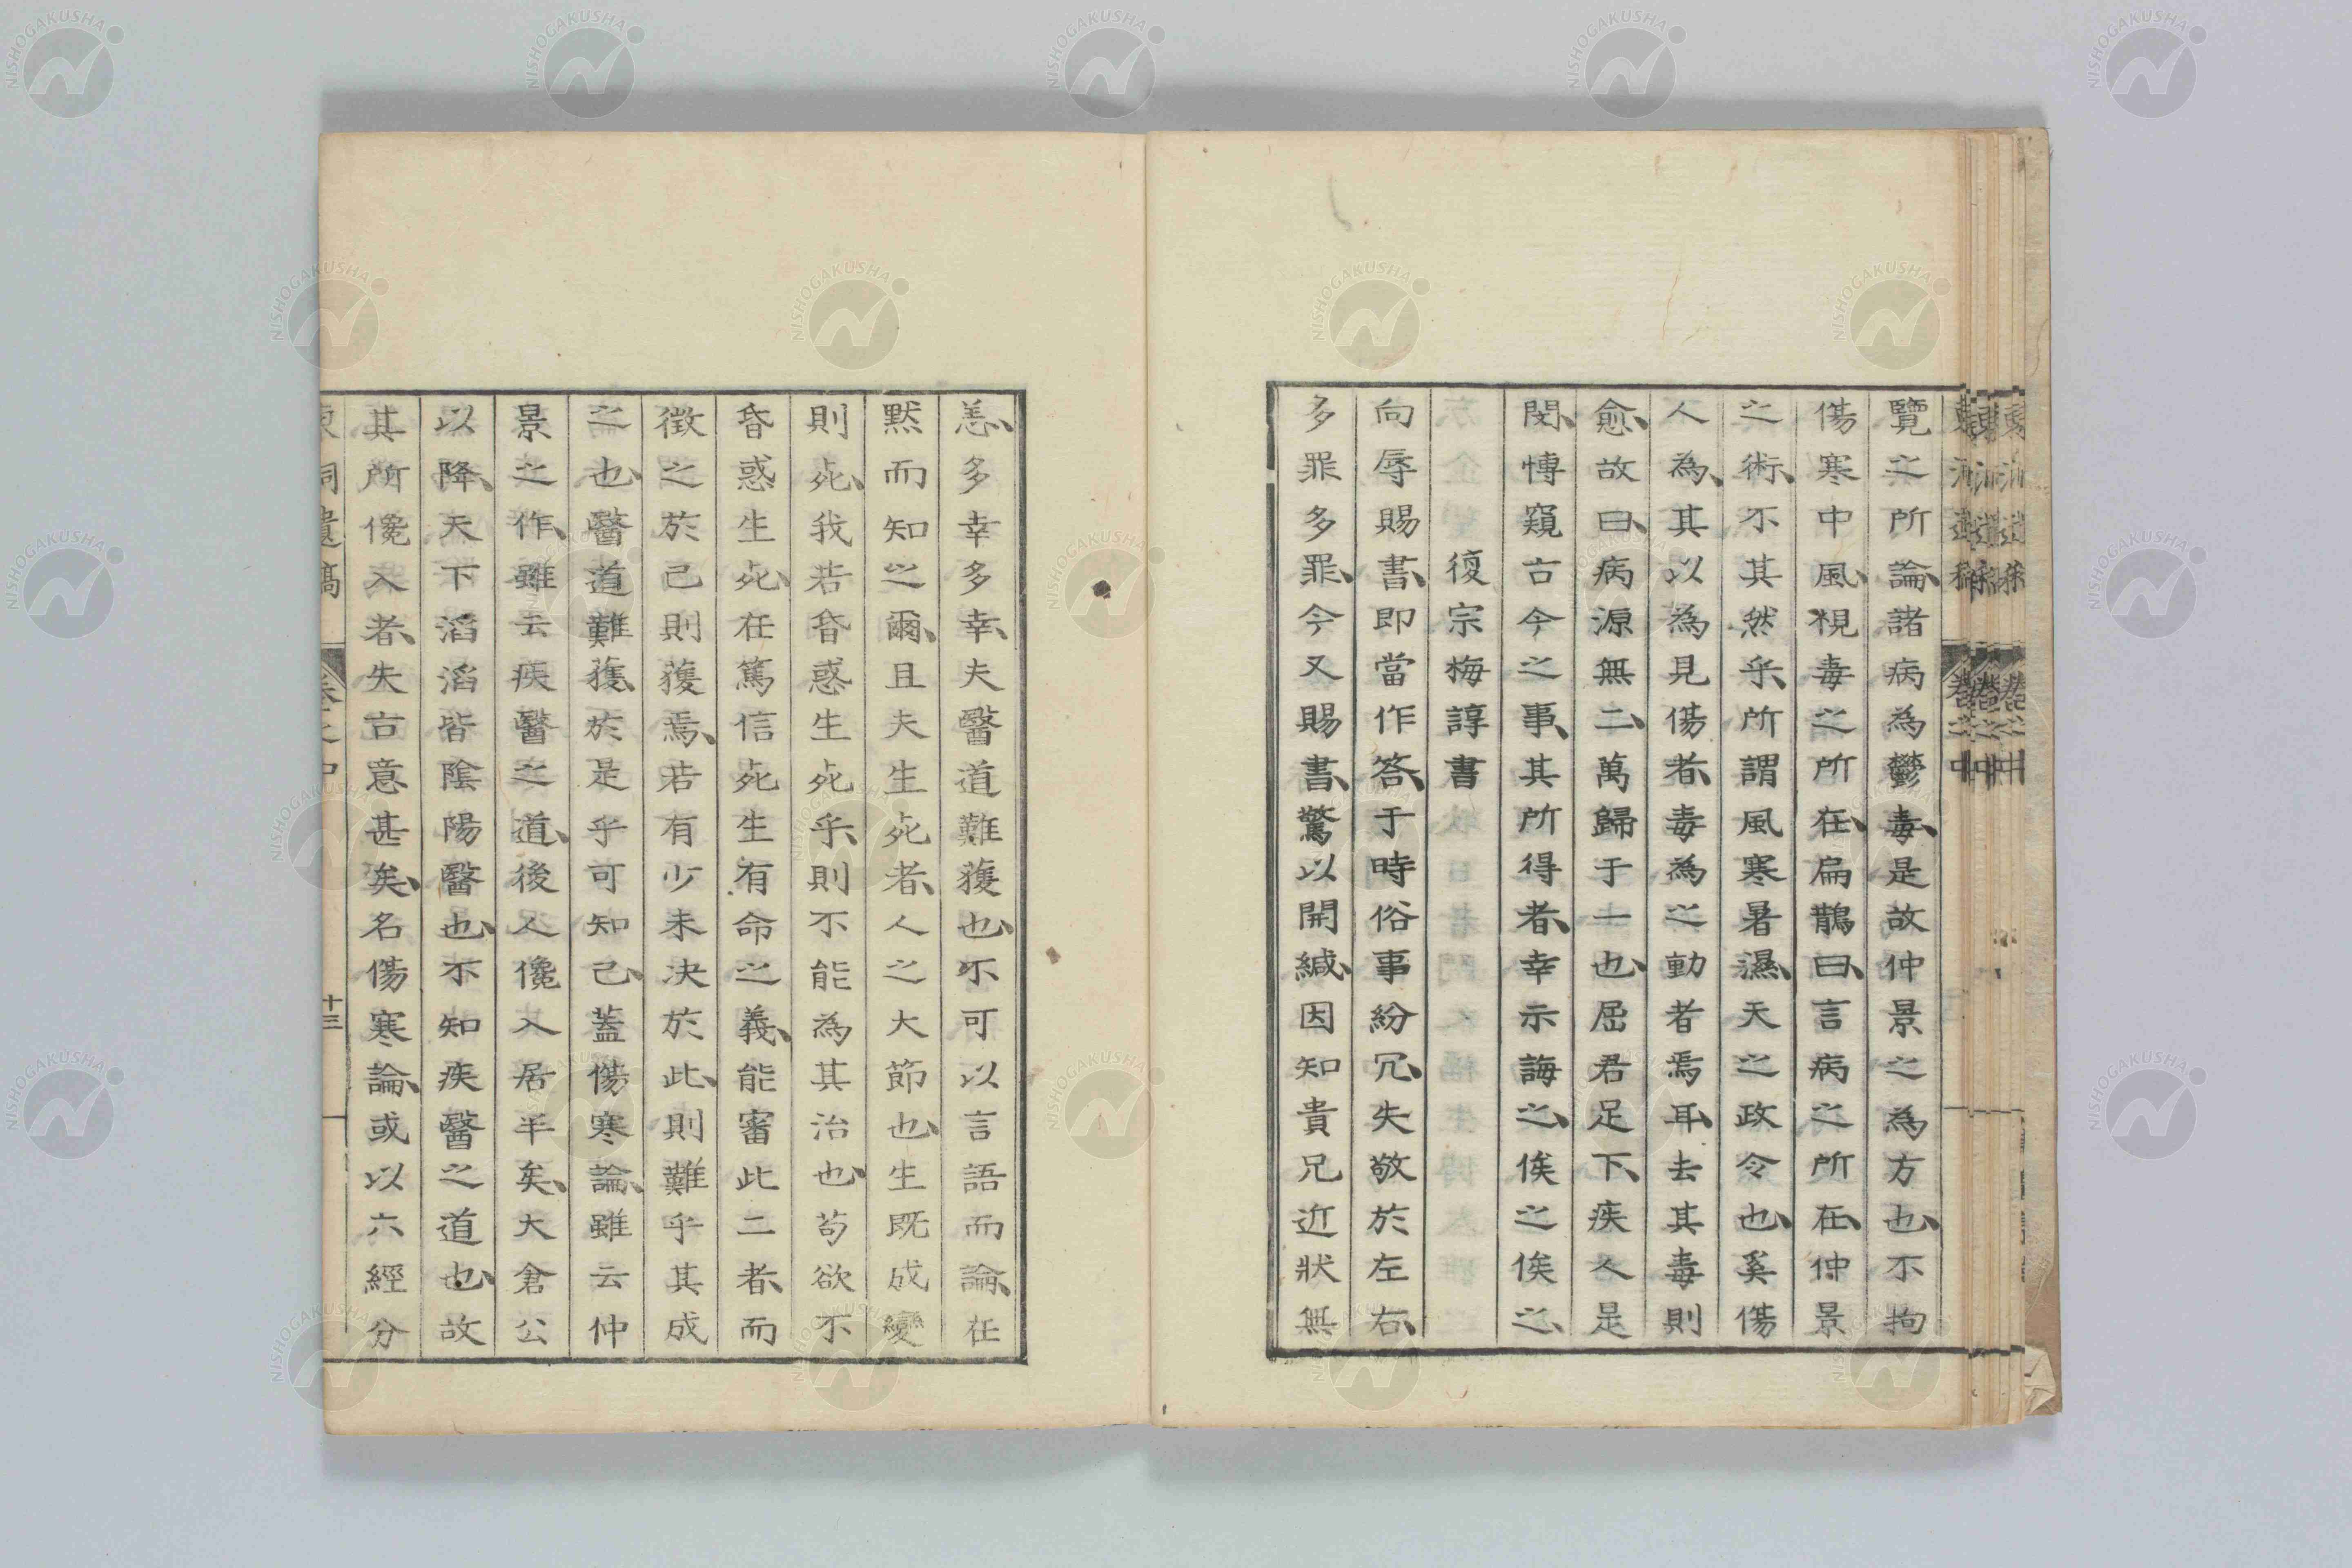 覽之所論、諸病為鬱毒、是故仲景之為方也、不拘
傷寒中風、視毒之所在、扁鵲曰、言病之所在、仲景
之術、不其然乎、所謂風寒暑濕、天之政令也、奚傷
人為、其以為見傷者、毒為之動者焉耳、去其毒則
愈、故曰、病源無二、萬歸于一也、屈君足下、疾人是
閔、博窺古今之事、其所得者、幸示誨之、俟之俟之、
復宗梅諄書
向辱賜書、即當作答、于時俗事紛冗、失敬於左右、
多罪多罪、今又賜書、驚以開緘、因知貴兄近狀無
恙、多幸多幸、夫醫道難獲也、不可以言語而論、在
默而知之爾、且夫生死者、人之大節也、生既成變
則死、我若昏惑生死乎、則不能為其治也、苟欲不
昏惑生死、在篤信死生有命之義、能審此二者、而
徵之於己則獲焉、若有少未決於此、則難乎其成
之也、醫道難獲、於是乎可知己、蓋傷寒論、雖云仲
景之作、雖云疾醫之道、後人儳入居半矣、大倉公
以降、天下滔滔皆陰陽醫也、不知疾醫之道也、故
其所儳入者、失古意甚矣、名傷寒論、或以六經分
東洞遺稿 卷之中 十三